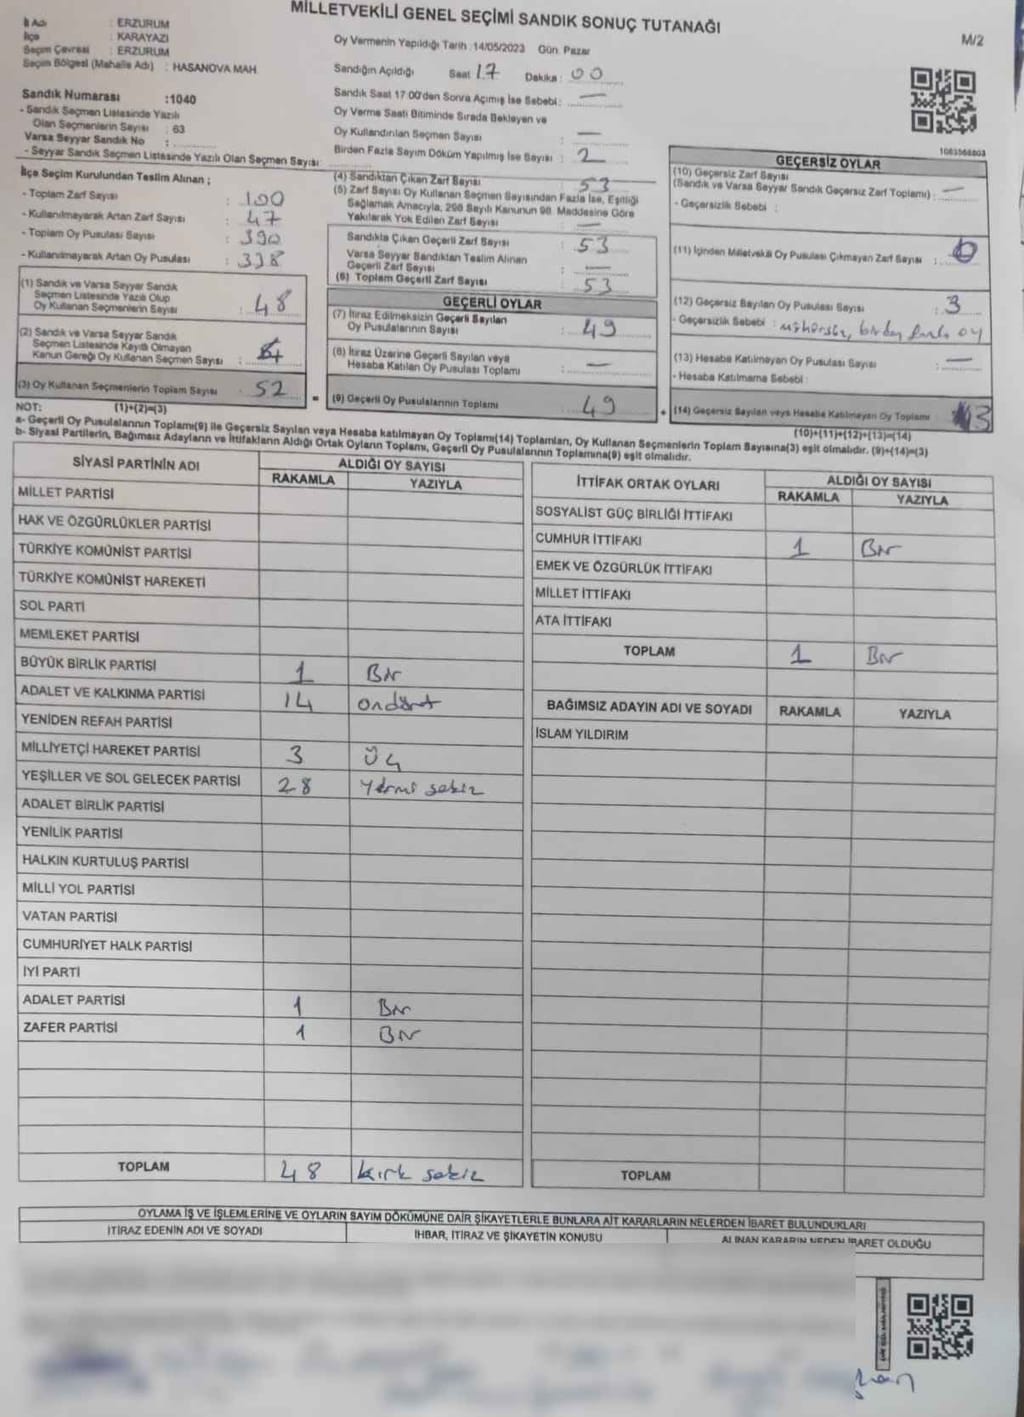 MİLLETVEKİLİ GENEL SEÇİMİ SANDIK SONUÇ TUTANAĞI
M/2
İl Adı : ERZURUM
İlçe : KARAYAZI
Seçim Çevresi : ERZURUM
Seçim Bölgesi (Mahalle Adı) : HASANOVA MAH.
Sandık Numarası :1040
- Sandık Seçmen Listesinde Yazılı
Olan Seçmenlerin Sayısı : 63
Varsa Seyyar Sandık No :
- Seyyar Sandık Seçmen Listesinde Yazılı Olan Seçmen Sayısı
Oy Vermenin Yapıldığı Tarih :14/05/2023 Gün: Pazar
Sandığın Açıldığı Saat 17 Dakika : 00
Sandık Saat 17:00'den Sonra Açımış İse Sebebi: —
Oy Verme Saati Bitiminde Sırada Bekleyen ve
Oy Kullandırılan Seçmen Sayısı : —
Birden Fazla Sayım Döküm Yapılmış İse Sayısı : 2
İlçe Seçim Kurulundan Teslim Alınan ;
- Toplam Zarf Sayısı : 100
- Kullanılmayarak Artan Zarf Sayısı : 47
- Toplam Oy Pusulası Sayısı : 390
- Kullanılmayarak Artan Oy Pusulası : 338
(1) Sandık ve Varsa Seyyar Sandık
Seçmen Listesinde Yazılı Olup
Oy Kullanan Seçmenlerin Sayısı : 48
(2) Sandık ve Varsa Seyyar Sandık
Seçmen Listesinde Kayıtlı Olmayan
Kanun Gereği Oy Kullanan Seçmen Sayısı : 4
(3) Oy Kullanan Seçmenlerin Toplam Sayısı 52
(1)+(2)=(3)
(4) Sandıktan Çıkan Zarf Sayısı : 53
(5) Zarf Sayısı Oy Kullanan Seçmen Sayısından Fazla İse, Eşitliği
Sağlamak Amacıyla, 298 Sayılı Kanunun 98. Maddesine Göre
Yakılarak Yok Edilen Zarf Sayısı : —
Sandıkta Çıkan Geçerli Zarf Sayısı : 53
Varsa Seyyar Sandıktan Teslim Alınan
Geçerli Zarf Sayısı : —
(6) Toplam Geçerli Zarf Sayısı : 53
GEÇERLİ OYLAR
(7) İtiraz Edilmeksizin Geçerli Sayılan
Oy Pusulalarının Sayısı : 49
(8) İtiraz Üzerine Geçerli Sayılan veya
Hesaba Katılan Oy Pusulası Toplamı : —
= (9) Geçerli Oy Pusulalarının Toplamı : 49
1083568803
GEÇERSİZ OYLAR
(10) Geçersiz Zarf Sayısı
(Sandık ve Varsa Seyyar Sandık Geçersiz Zarf Toplamı) : —
- Geçersizlik Sebebi :
(11) İçinden Milletvekili Oy Pusulası Çıkmayan Zarf Sayısı :
(12) Geçersiz Sayılan Oy Pusulası Sayısı : 3
- Geçersizlik Sebebi : mühürsüz, birden fazla oy
(13) Hesaba Katılmayan Oy Pusulası Sayısı : —
- Hesaba Katılmama Sebebi :
+ (14) Geçersiz Sayılan veya Hesaba Katılmayan Oy Toplamı : 3
(10)+(11)+(12)+(13)=(14)
NOT:
a- Geçerli Oy Pusulalarının Toplamı(9) ile Geçersiz Sayılan veya Hesaba katılmayan Oy Toplamı(14) Toplamları, Oy Kullanan Seçmenlerin Toplam Sayısına(3) eşit olmalıdır. (9)+(14)=(3)
b- Siyasi Partilerin, Bağımsız Adayların ve İttifakların Aldığı Ortak Oyların Toplamı, Geçerli Oy Pusulalarının Toplamına(9) eşit olmalıdır.
SİYASİ PARTİNİN ADI ALDIĞI OY SAYISI
RAKAMLA YAZIYLA
MİLLET PARTİSİ
HAK VE ÖZGÜRLÜKLER PARTİSİ
TÜRKİYE KOMÜNİST PARTİSİ
TÜRKİYE KOMÜNİST HAREKETİ
SOL PARTİ
MEMLEKET PARTİSİ
BÜYÜK BİRLİK PARTİSİ 1 Bir
ADALET VE KALKINMA PARTİSİ 14 ondört
YENİDEN REFAH PARTİSİ
MİLLİYETÇİ HAREKET PARTİSİ 3 Üç
YEŞİLLER VE SOL GELECEK PARTİSİ 28 Yirmi sekiz
ADALET BİRLİK PARTİSİ
YENİLİK PARTİSİ
HALKIN KURTULUŞ PARTİSİ
MİLLİ YOL PARTİSİ
VATAN PARTİSİ
CUMHURİYET HALK PARTİSİ
İYİ PARTİ
ADALET PARTİSİ 1 Bir
ZAFER PARTİSİ 1 Bir
TOPLAM 48 kırk sekiz
İTTİFAK ORTAK OYLARI ALDIĞI OY SAYISI
RAKAMLA YAZIYLA
SOSYALİST GÜÇ BİRLİĞİ İTTİFAKI
CUMHUR İTTİFAKI 1 Bir
EMEK VE ÖZGÜRLÜK İTTİFAKI
MİLLET İTTİFAKI
ATA İTTİFAKI
TOPLAM 1 Bir
BAĞIMSIZ ADAYIN ADI VE SOYADI RAKAMLA YAZIYLA
İSLAM YILDIRIM
TOPLAM
OYLAMA İŞ VE İŞLEMLERİNE VE OYLARIN SAYIM DÖKÜMÜNE DAİR ŞİKAYETLERLE BUNLARA AİT KARARLARIN NELERDEN İBARET BULUNDUKLARI
İTİRAZ EDENİN ADI VE SOYADI İHBAR, İTİRAZ VE ŞİKAYETİN KONUSU ALINAN KARARIN NEDEN İBARET OLDUĞU